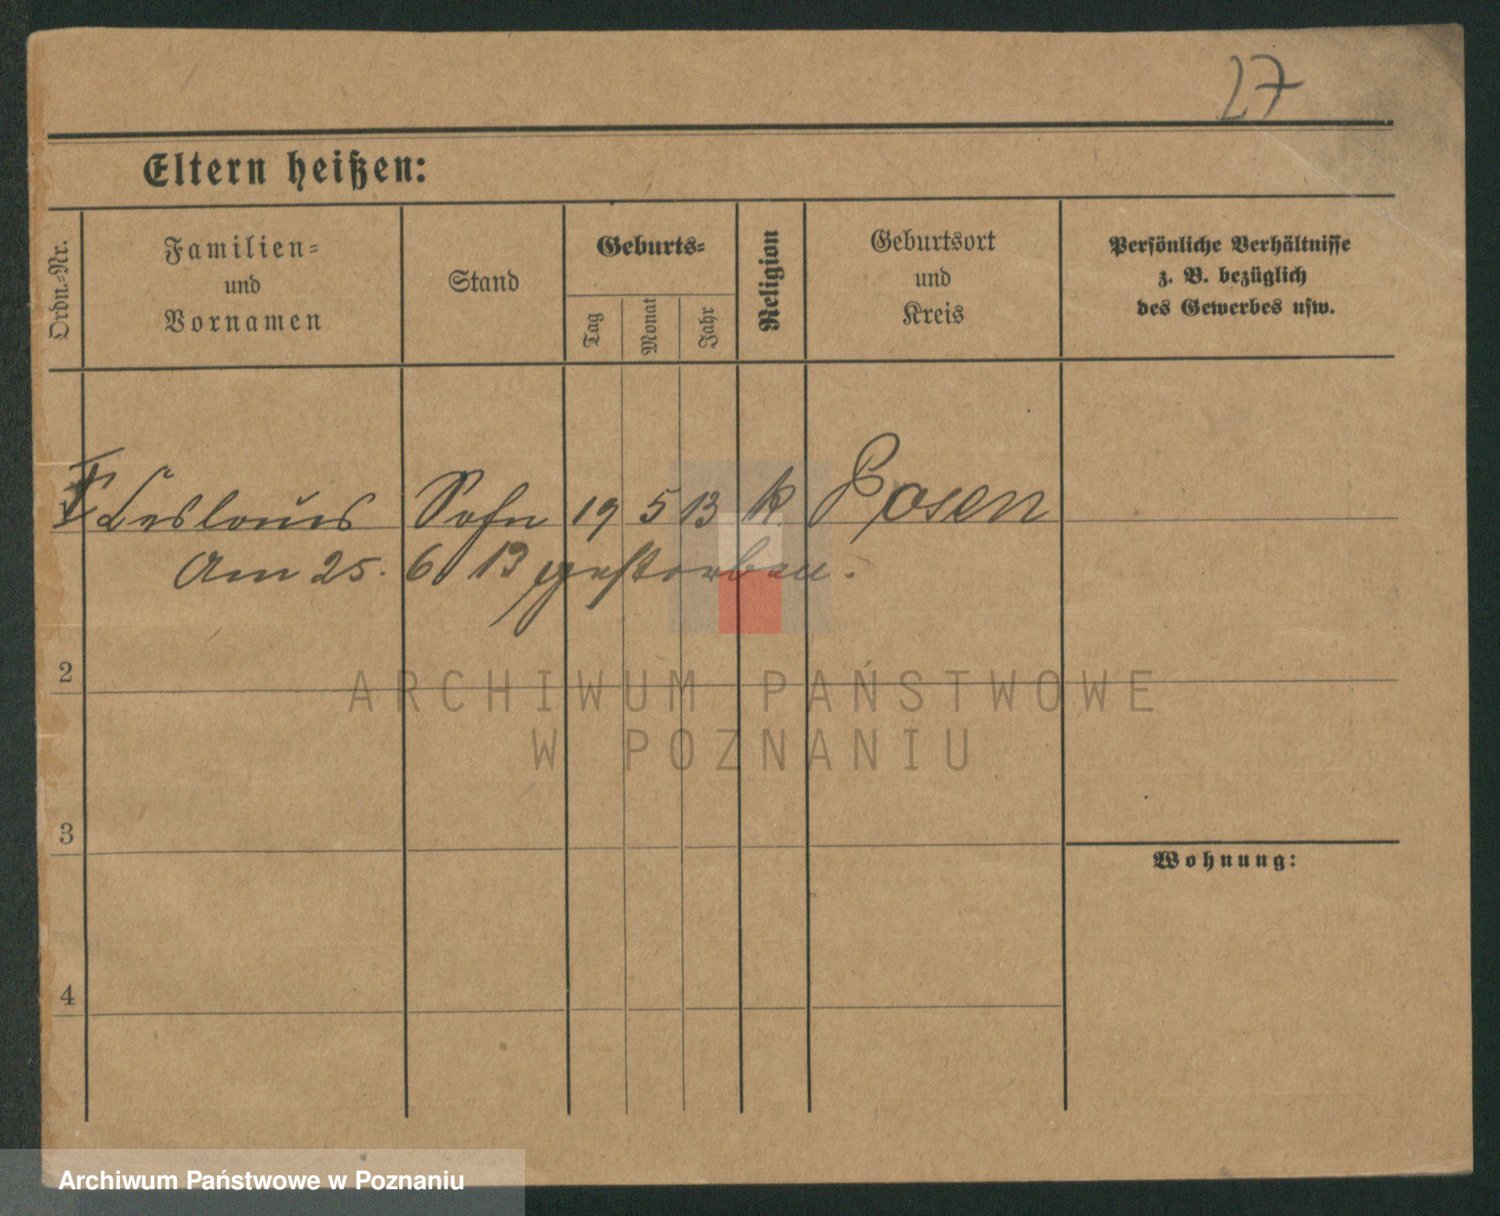 27
Eltern heißen:
Ordn.-Nr.
Familien-
und
Vornamen
Stand
Geburts-
Tag
Monat
Jahr
Religion
Geburtsort
und
Kreis
Persönliche Verhältnisse
z. B. bezüglich
des Gewerbes usw.
Sohn 19 5 13 k Posen
Am 25. 6 13 gestorben.
2
ARCHIWUM PAŃSTWOWE
W POZNANIU
3
Wohnung:
4
Archiwum Państwowe w Poznaniu